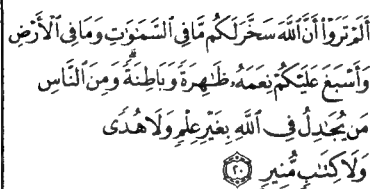 أَلَمْ تَرَوْا۟ أَنَّ ٱللَّهَ سَخَّرَ لَكُم مَّا فِى ٱلسَّمَـٰوَٰتِ وَمَا فِى ٱلْأَرْضِ
وَأَسْبَغَ عَلَيْكُمْ نِعَمَهُۥ ظَـٰهِرَةً وَبَاطِنَةً ۗ وَمِنَ ٱلنَّاسِ
مَن يُجَـٰدِلُ فِى ٱللَّهِ بِغَيْرِ عِلْمٍ وَلَا هُدًى
وَلَا كِتَـٰبٍ مُّنِيرٍ ٢٠